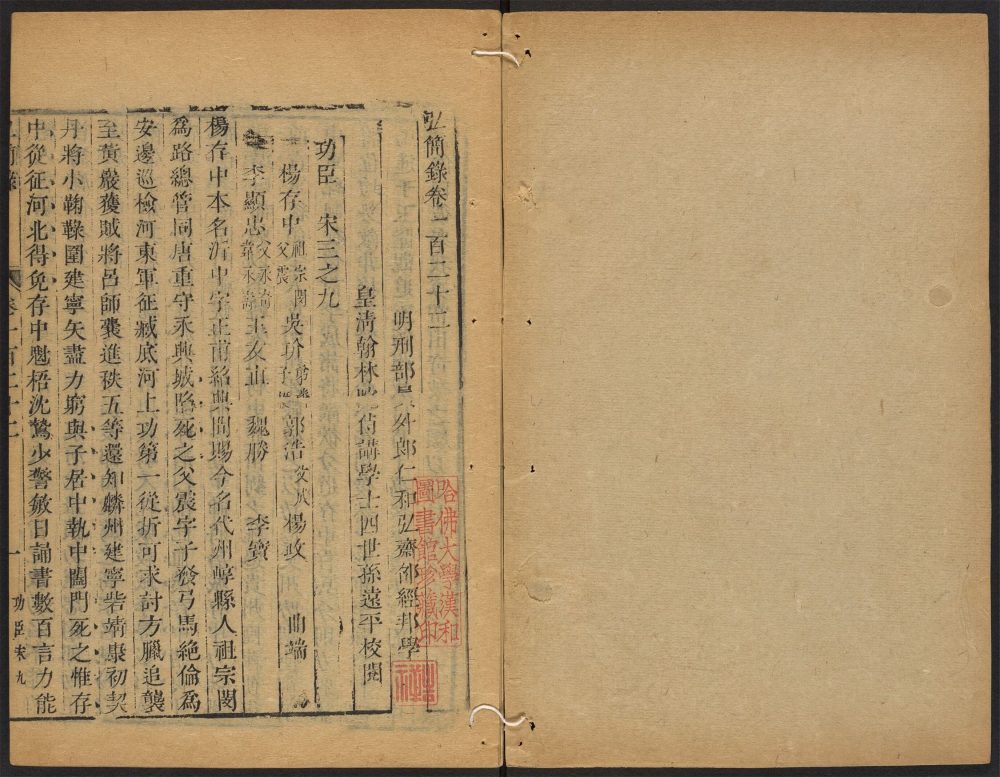 弘簡錄卷一百二十二
明刑部員外郎仁和弘齋邵經邦學
皇清翰林院侍講學士四世孫遠平校閱
功臣 宋三之九
楊存中 祖宗閔 父震 吳玠 郭浩 楊政 曲端
李顯忠 父永奇 王友直 魏勝 李寶
楊存中本名沂中字正甫紹興間賜今名代州崞縣人祖宗閔
為路總管同唐重守永興城陷死之父震字子發弓馬絕倫為
安邊巡檢河東軍征臧底河上功第一從折可求討方臘追襲
至黃巖獲賊將呂師囊進秩五等還知麟州建寧砦靖康初契
丹將小鞠䩮圍建寧矢盡力窮與子居中執中闔門死之惟存
中從征河北得免存中魁梧沈鷙少警敏日誦書數百言力能
卷一百二十二
一
功臣宋九
哈佛大學漢和
圖書館珍藏印